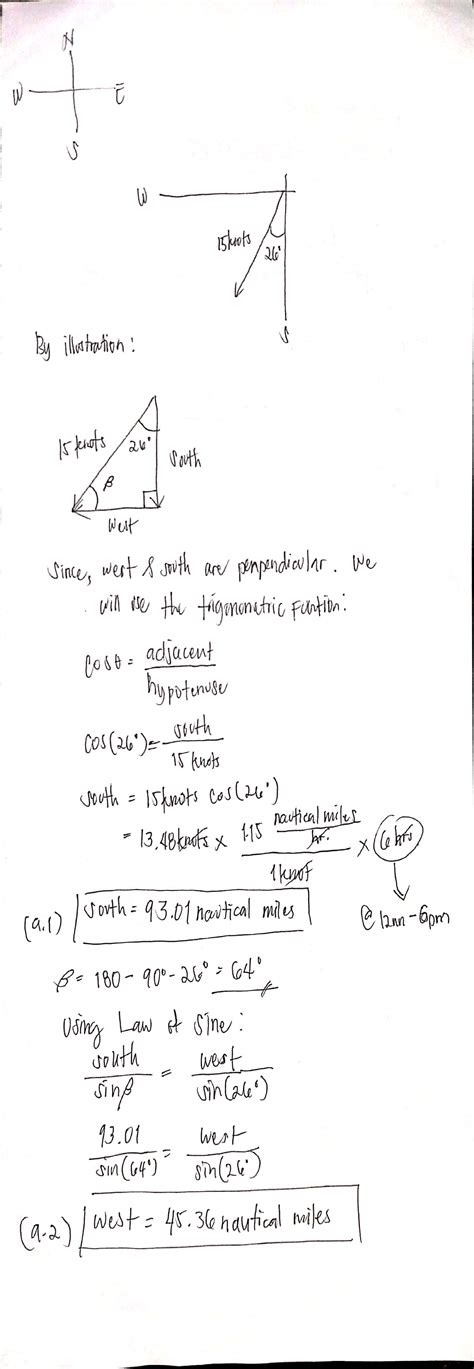 N
W E
S
W
15 knots
26°
S
By illustration:
15 knots 26° South
β
West
Since, west & south are perpendicular. We
will use the trigonometric funtion:
Cos θ = adjacent
hypotenuse
Cos(26°) = south
15 knots
South = 15 knots cos(26°)
= 13.48 knots × 1.15 nautical miles
hr.
1 knot
× 6 hrs
@ 12nn - 6pm
(a.1) South = 93.01 nautical miles
β = 180 - 90° - 26° = 64°
Using Law of Sine:
South = west
sin β sin(26°)
93.01 = west
sin(64°) sin(26°)
(a.2) West = 45.36 nautical miles